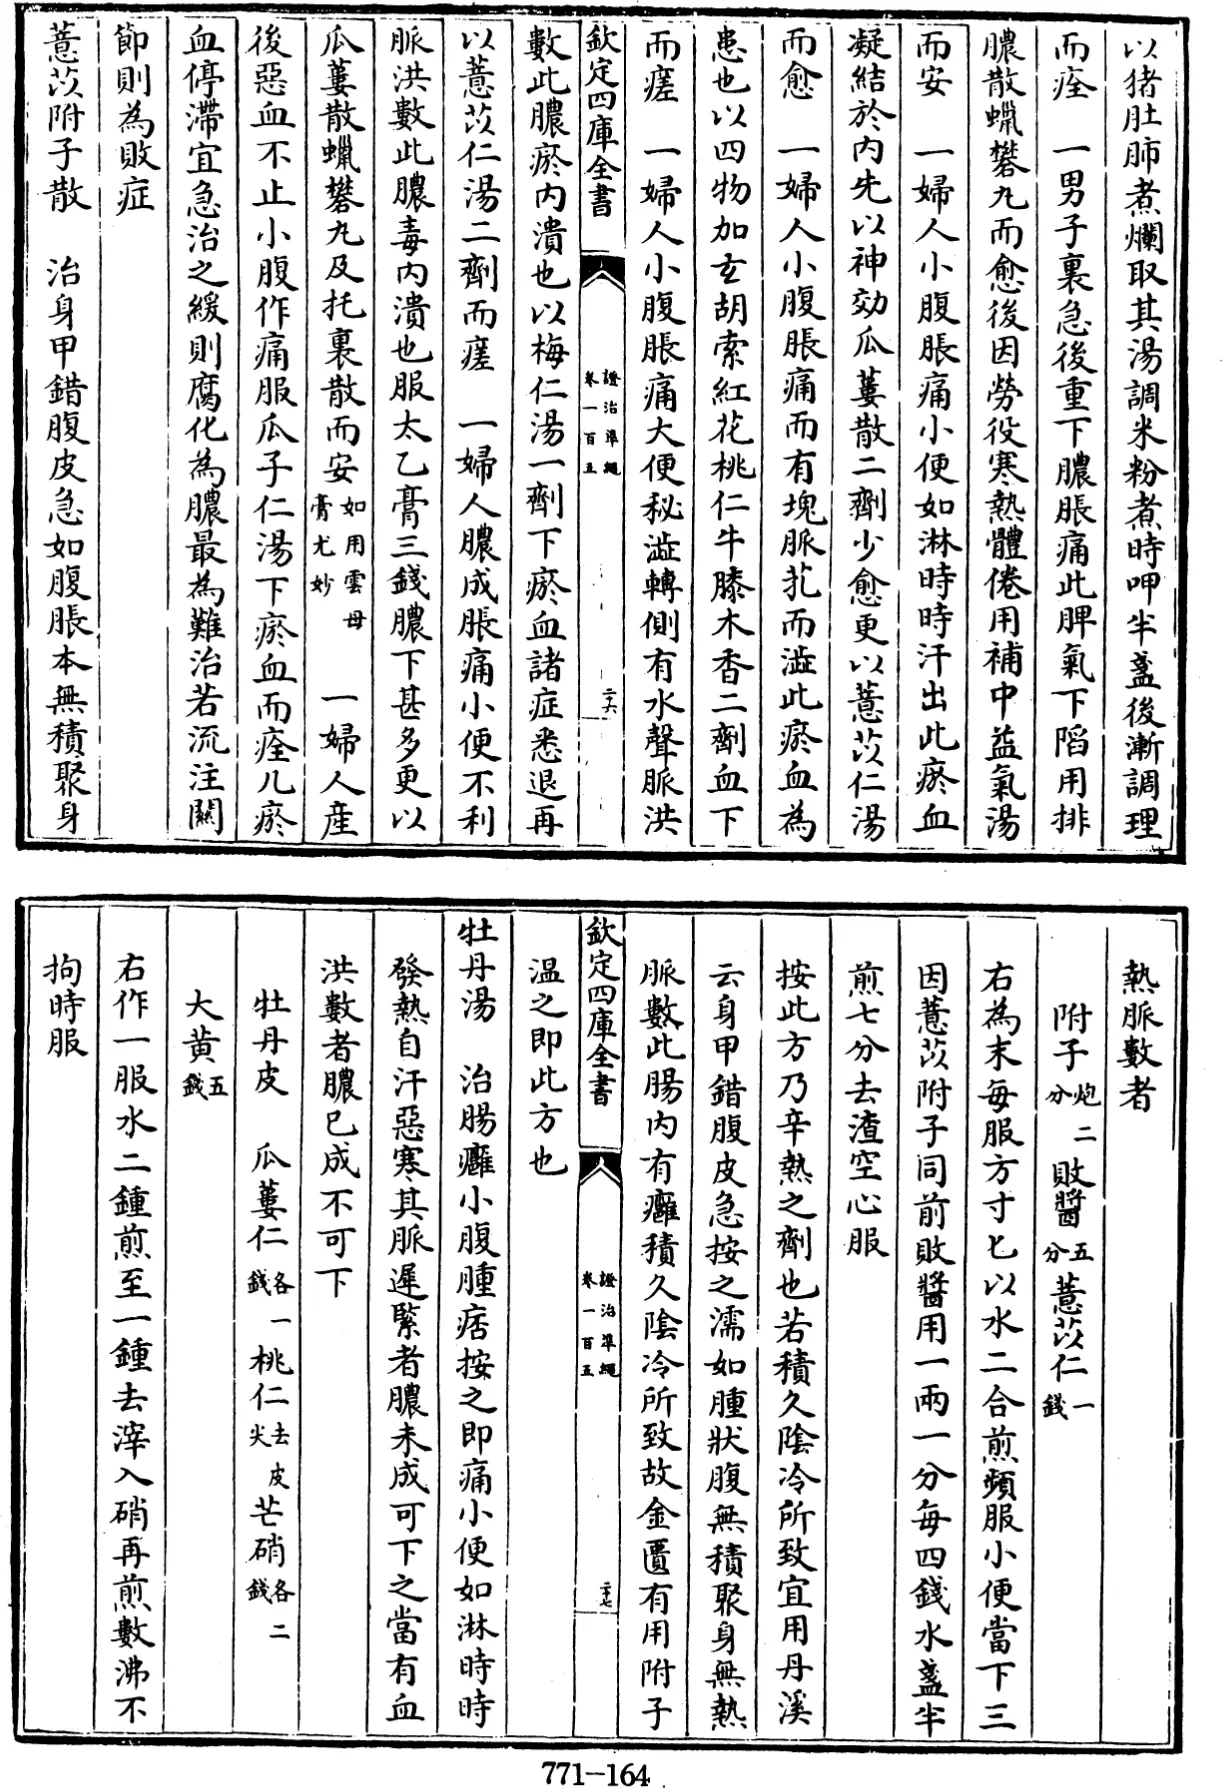 以猪肚肺煮爛取其湯調米粉煮時呷半盞後漸調理
而痊　一男子裏急後重下膿脹痛此脾氣下陷用排
膿散蠟礬丸而愈後因勞役寒熱體倦用補中益氣湯
而安　一婦人小腹脹痛小便如淋時時汗出此瘀血
凝結於內先以神効瓜蔞散二劑少愈更以薏苡仁湯
而愈　一婦人小腹脹痛而有塊脈芤而澁此瘀血為
患也以四物加玄胡索紅花桃仁牛膝木香二劑血下
而瘥　一婦人小腹脹痛大便秘澁轉側有水聲脈洪
欽定四庫全書　證治準繩卷一百五　二十六
數此膿瘀內潰也以梅仁湯一劑下瘀血諸症悉退再
以薏苡仁湯二劑而瘥　一婦人膿成脹痛小便不利
脈洪數此膿毒內潰也服太乙膏三錢膿下甚多更以
瓜蔞散蠟礬丸及托裏散而安如用雲母膏尤妙　一婦人産
後惡血不止小腹作痛服瓜子仁湯下瘀血而痊凡瘀
血停滯宜急治之緩則腐化為膿最為難治若流注關
節則為敗症
薏苡附子散　治身甲錯腹皮急如腹脹本無積聚身
熱脈數者
附子炮二分　敗醬五分　薏苡仁一錢
右為末每服方寸匕以水二合煎頻服小便當下三
因薏苡附子同前敗醬用一兩一分每四錢水盞半
煎七分去渣空心服
按此方乃辛熱之劑也若積久陰冷所致宜用丹溪
云身甲錯腹皮急按之濡如腫狀腹無積聚身無熱
脈數此腸內有癰積久陰冷所致故金匱有用附子
欽定四庫全書　證治準繩卷一百五　二十七
温之即此方也
牡丹湯　治腸癰小腹腫痞按之即痛小便如淋時時
發熱自汗惡寒其脈遲緊者膿未成可下之當有血
洪數者膿已成不可下
牡丹皮　瓜蔞仁各一錢　桃仁去皮尖　芒硝各二錢
大黄五錢
右作一服水二鍾煎至一鍾去滓入硝再煎數沸不
拘時服
771-164